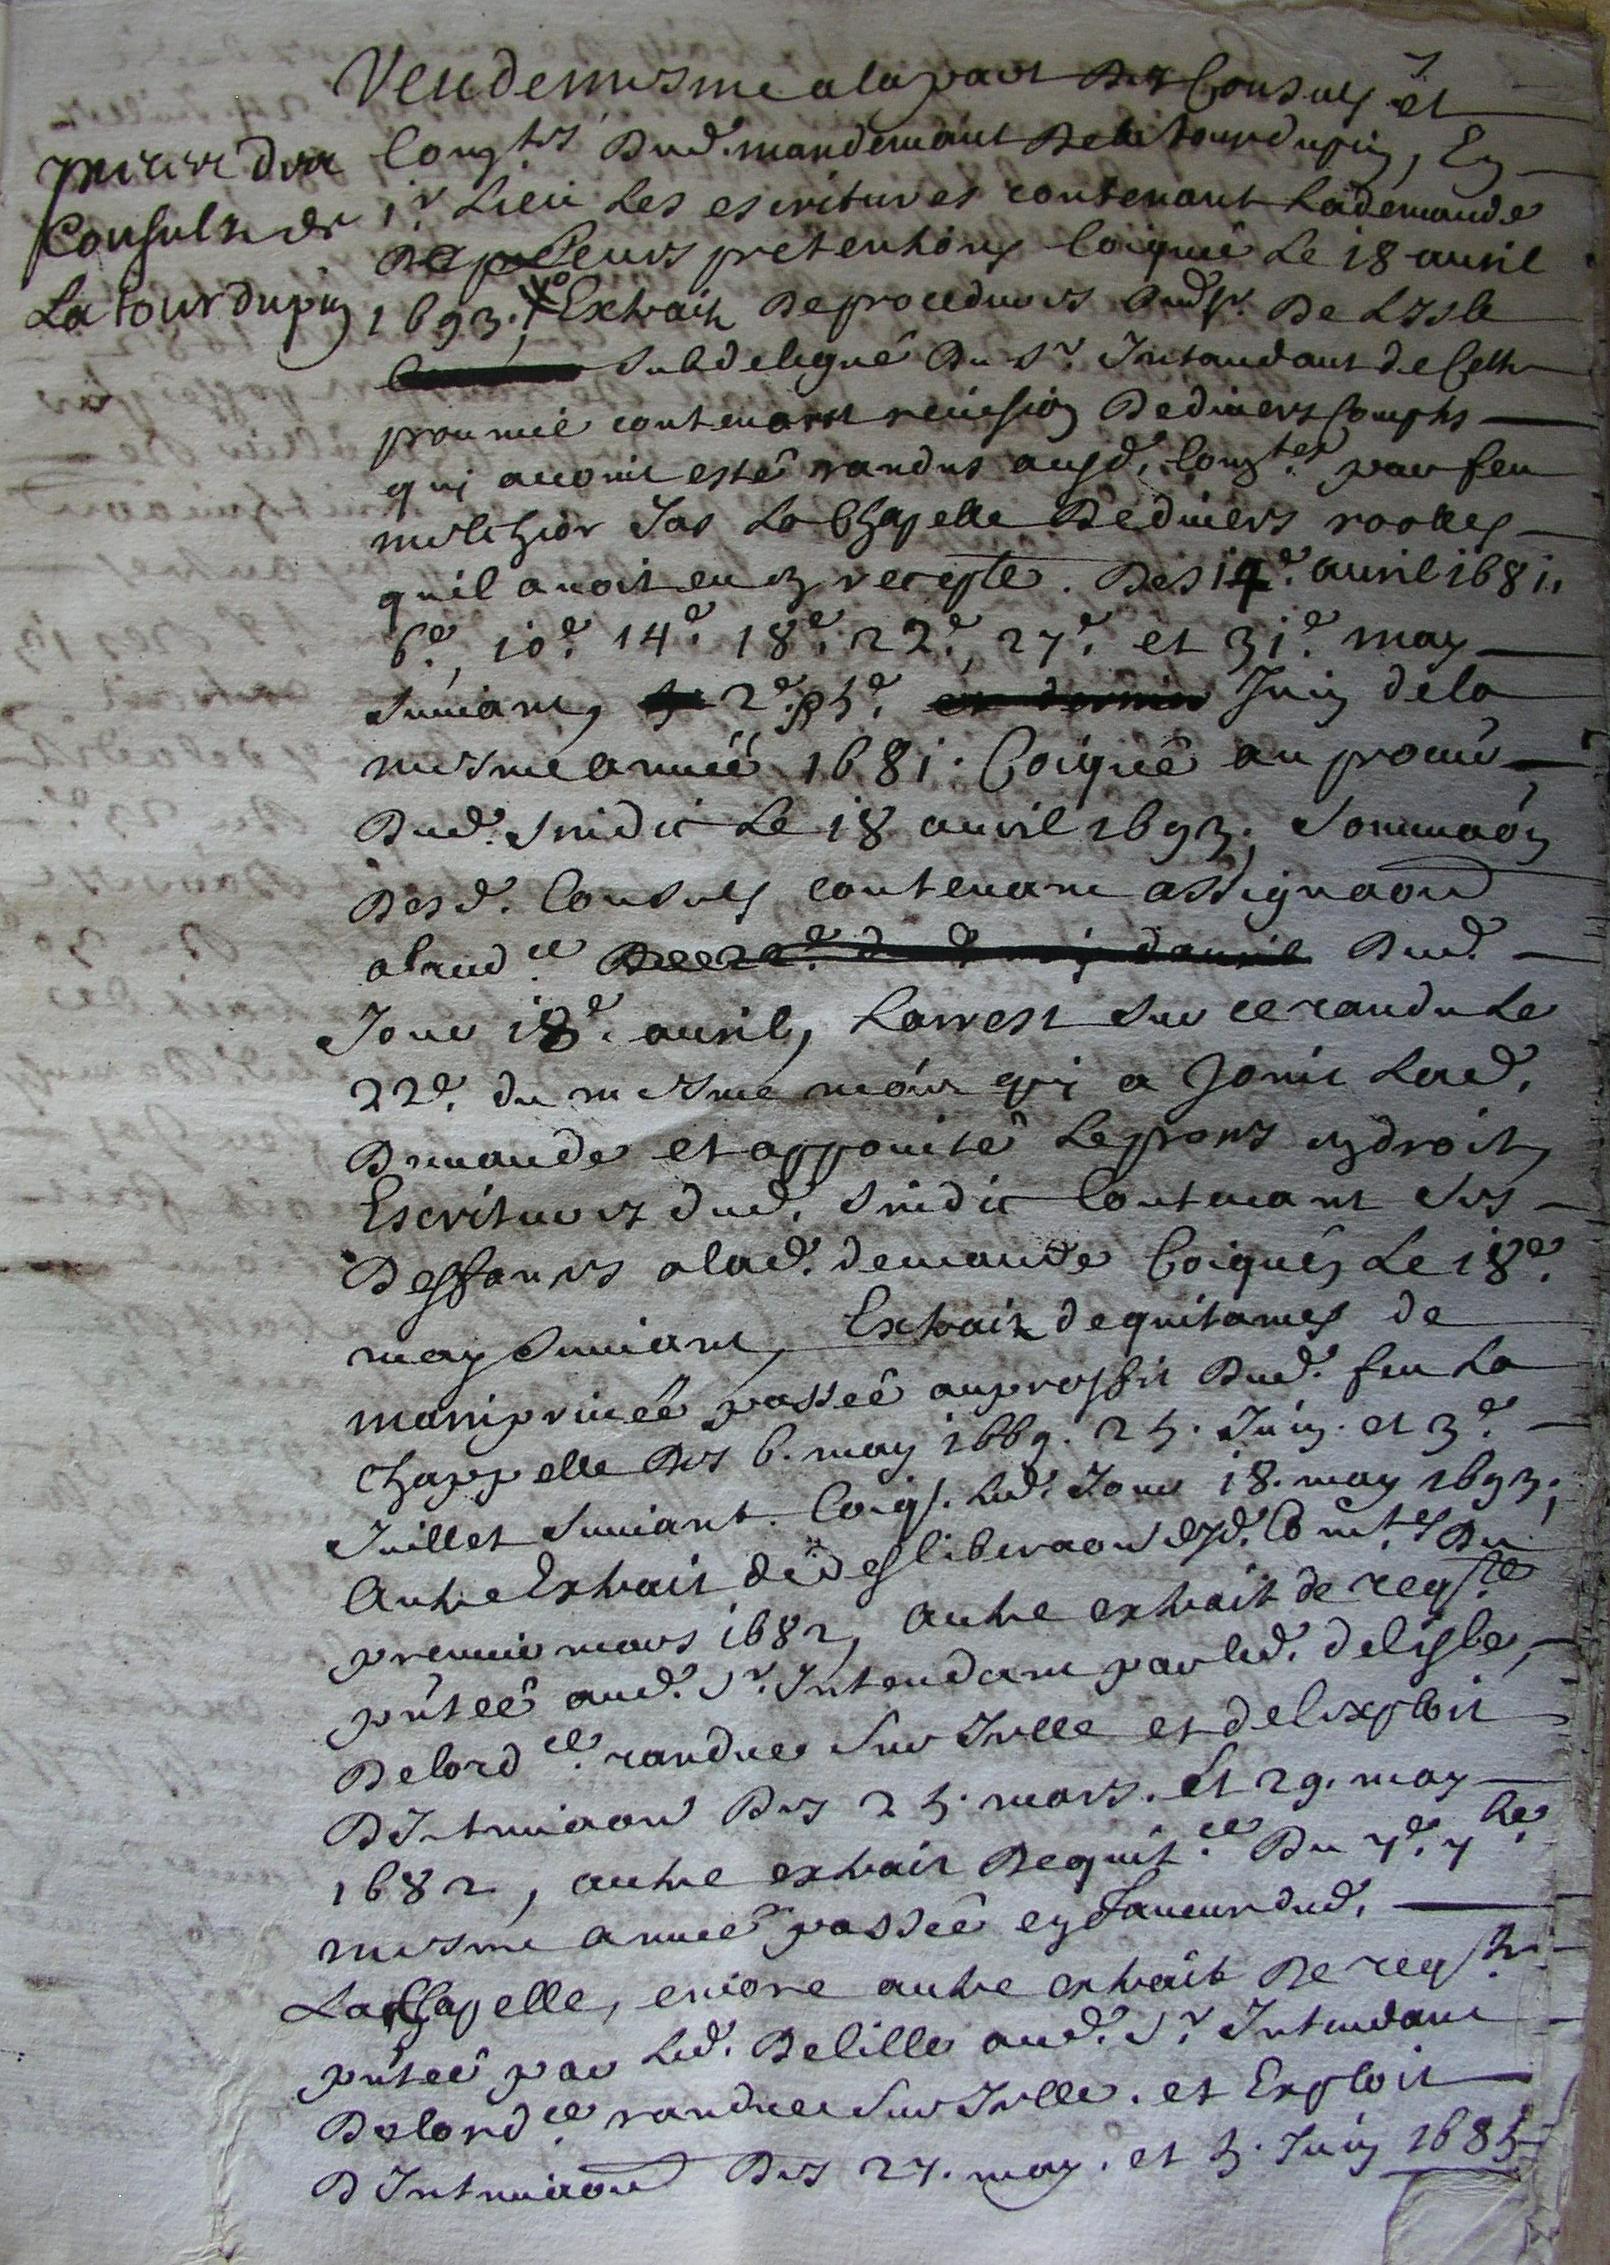 Veu de mesme a la part des Consuls et
pieces des
Consuls de
La tour du pin
Com^tes dud. mandemant de la tour du pin, En
1^r Lieu Les escritures contenant La demande
de Leurs pretentions Coiqué Le 18 auril
1693. Extrait de procedures dud s^r. De Lisle
subdelegué du s^r. Intandant de Cette
prouince contenant reuision de diuers Comptes
qui auoint esté randus ausd. Com^tes par feu
melchior Jas La Chapelle de diuers roolles
quil auoit eu en recepte. Des 14^e. auril 1681.
6^e, 10^e. 14^e. 18^e. 22^e, 27^e. et 31^e. may
suiuant, 2^e. 5^e. Juin de la
mesme année 1681. Coiqué au procur
dud. sindic Le 18 auril 1693. Sommaon
desd. Consuls contenant assignaon
a laud^ce dud.
Jour 18^e. auril, Larrest sur ce randu Le
22^e. du mesme mois qui a joint Lad.
demande et appointé Le proces en droit,
Escritures dud. sindic Contenant ses
deffances a lad. demande Coiqués Le 18^e.
may suiuant, Extrait de quitances de
main priuée passée au proffit dud. feu La
chappelle des 6. may 1669. 25. Juin. et 3^e.
Juillet suiuant. Coiq. led. Jour 18. may 1693,
Autre Extrait de desliberaon desd. Com^tes du
premier mars 1682, autre extrait de reqste
pntée aud. s^r. Intendant par led. de lisle,
de lord^ce. randue sur Icelle et de lexploit
d'Intimaon des 25. mars. et 29. may
1682, autre extrait de quit^ce du 7^e. 7^bre
mesme année passée en faueur dud.
La Chapelle, encore autre extrait de reqste
pntée par led. de lille aud. s^r Intendant
de lord^ce randue sur Icelle. et Exploit
d'Intimaon des 27. may. et 5. Juin 1685